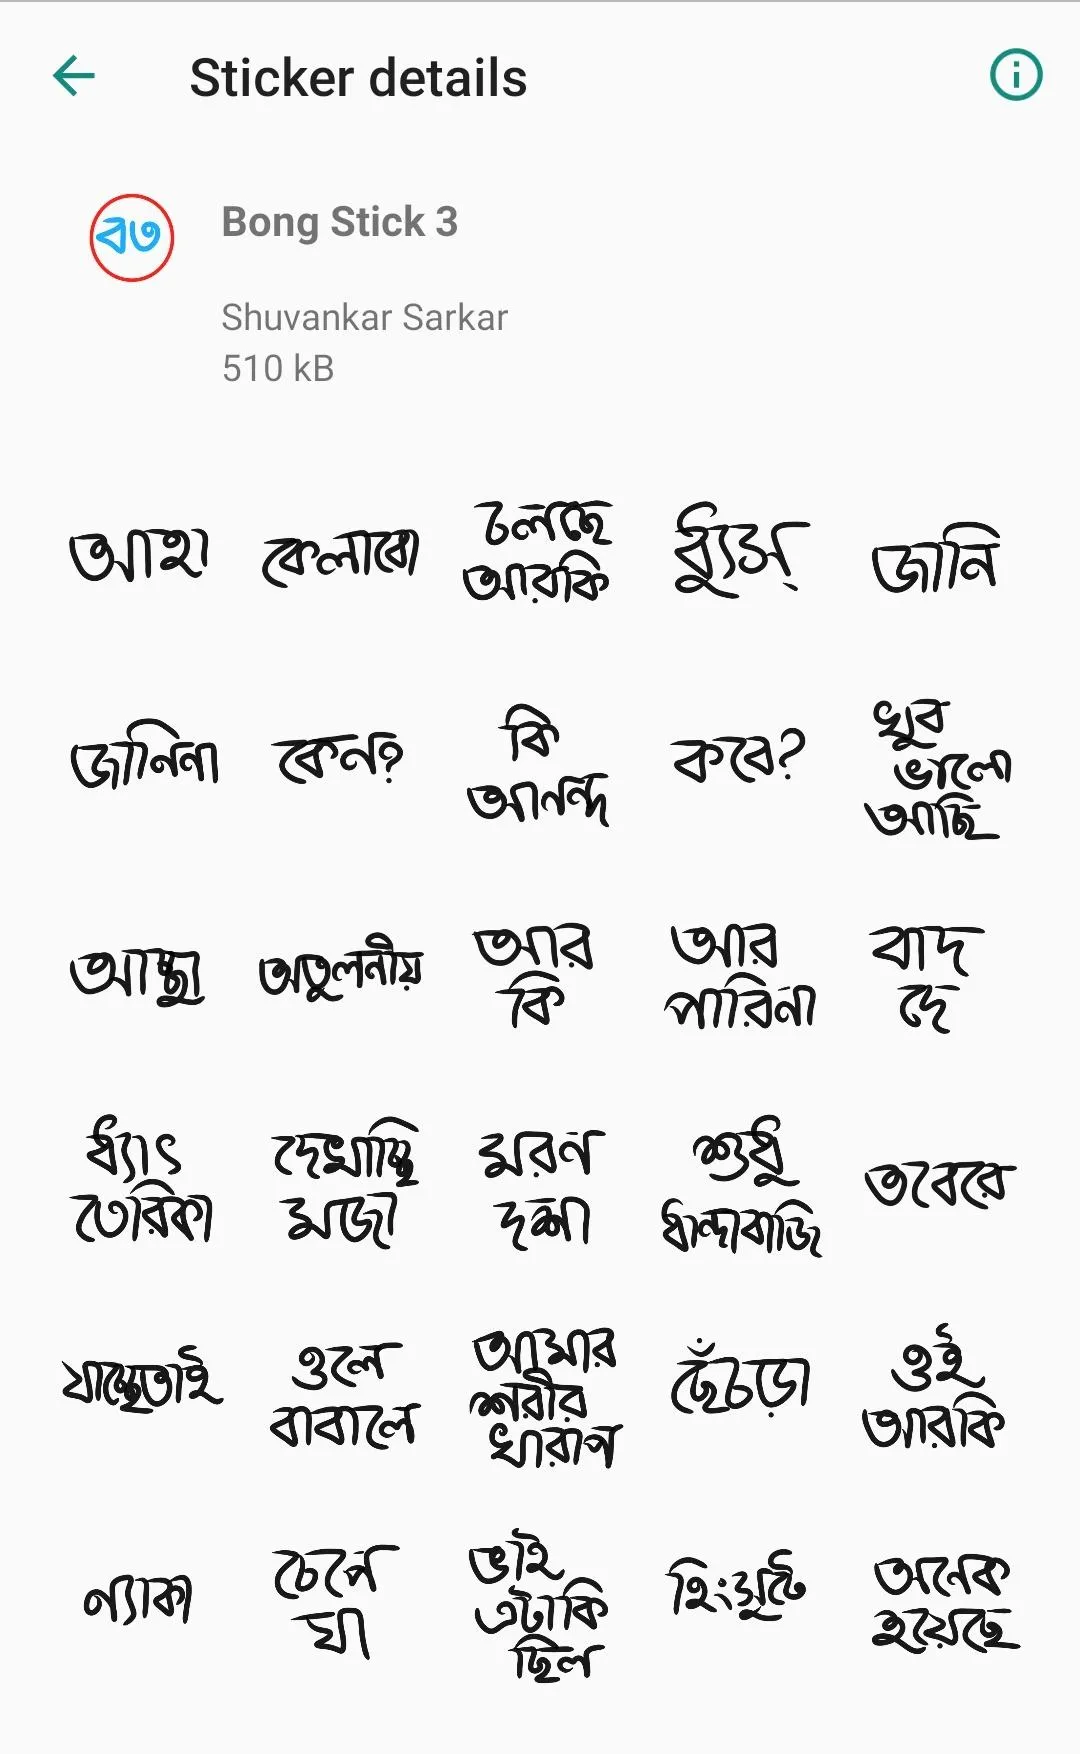 Sticker details
বত
Bong Stick 3
Shuvankar Sarkar
510 kB
আহা
কেলাবো
চলছে
আরকি
ধ্যুস্
জানি
জানিনা
কেন?
কি
আনন্দ
কবে?
খুব
ভালো
আছি
আচ্ছা
অতুলনীয়
আর
কি
আর
পারিনা
বাদ
দে
ধ্যাৎ
তেরিকা
দেখাচ্ছি
মজা
মরন
দশা
শুধু
ধান্দাবাজি
তবেরে
যাচ্ছেতাই
ওলে
বাবালে
আমার
শরীর
খারাপ
ছেঁচড়া
ওই
আরকি
ন্যাকা
চেপে
যা
ভাই
এটা কি
ছিল
হিংসুটে
অনেক
হয়েছে